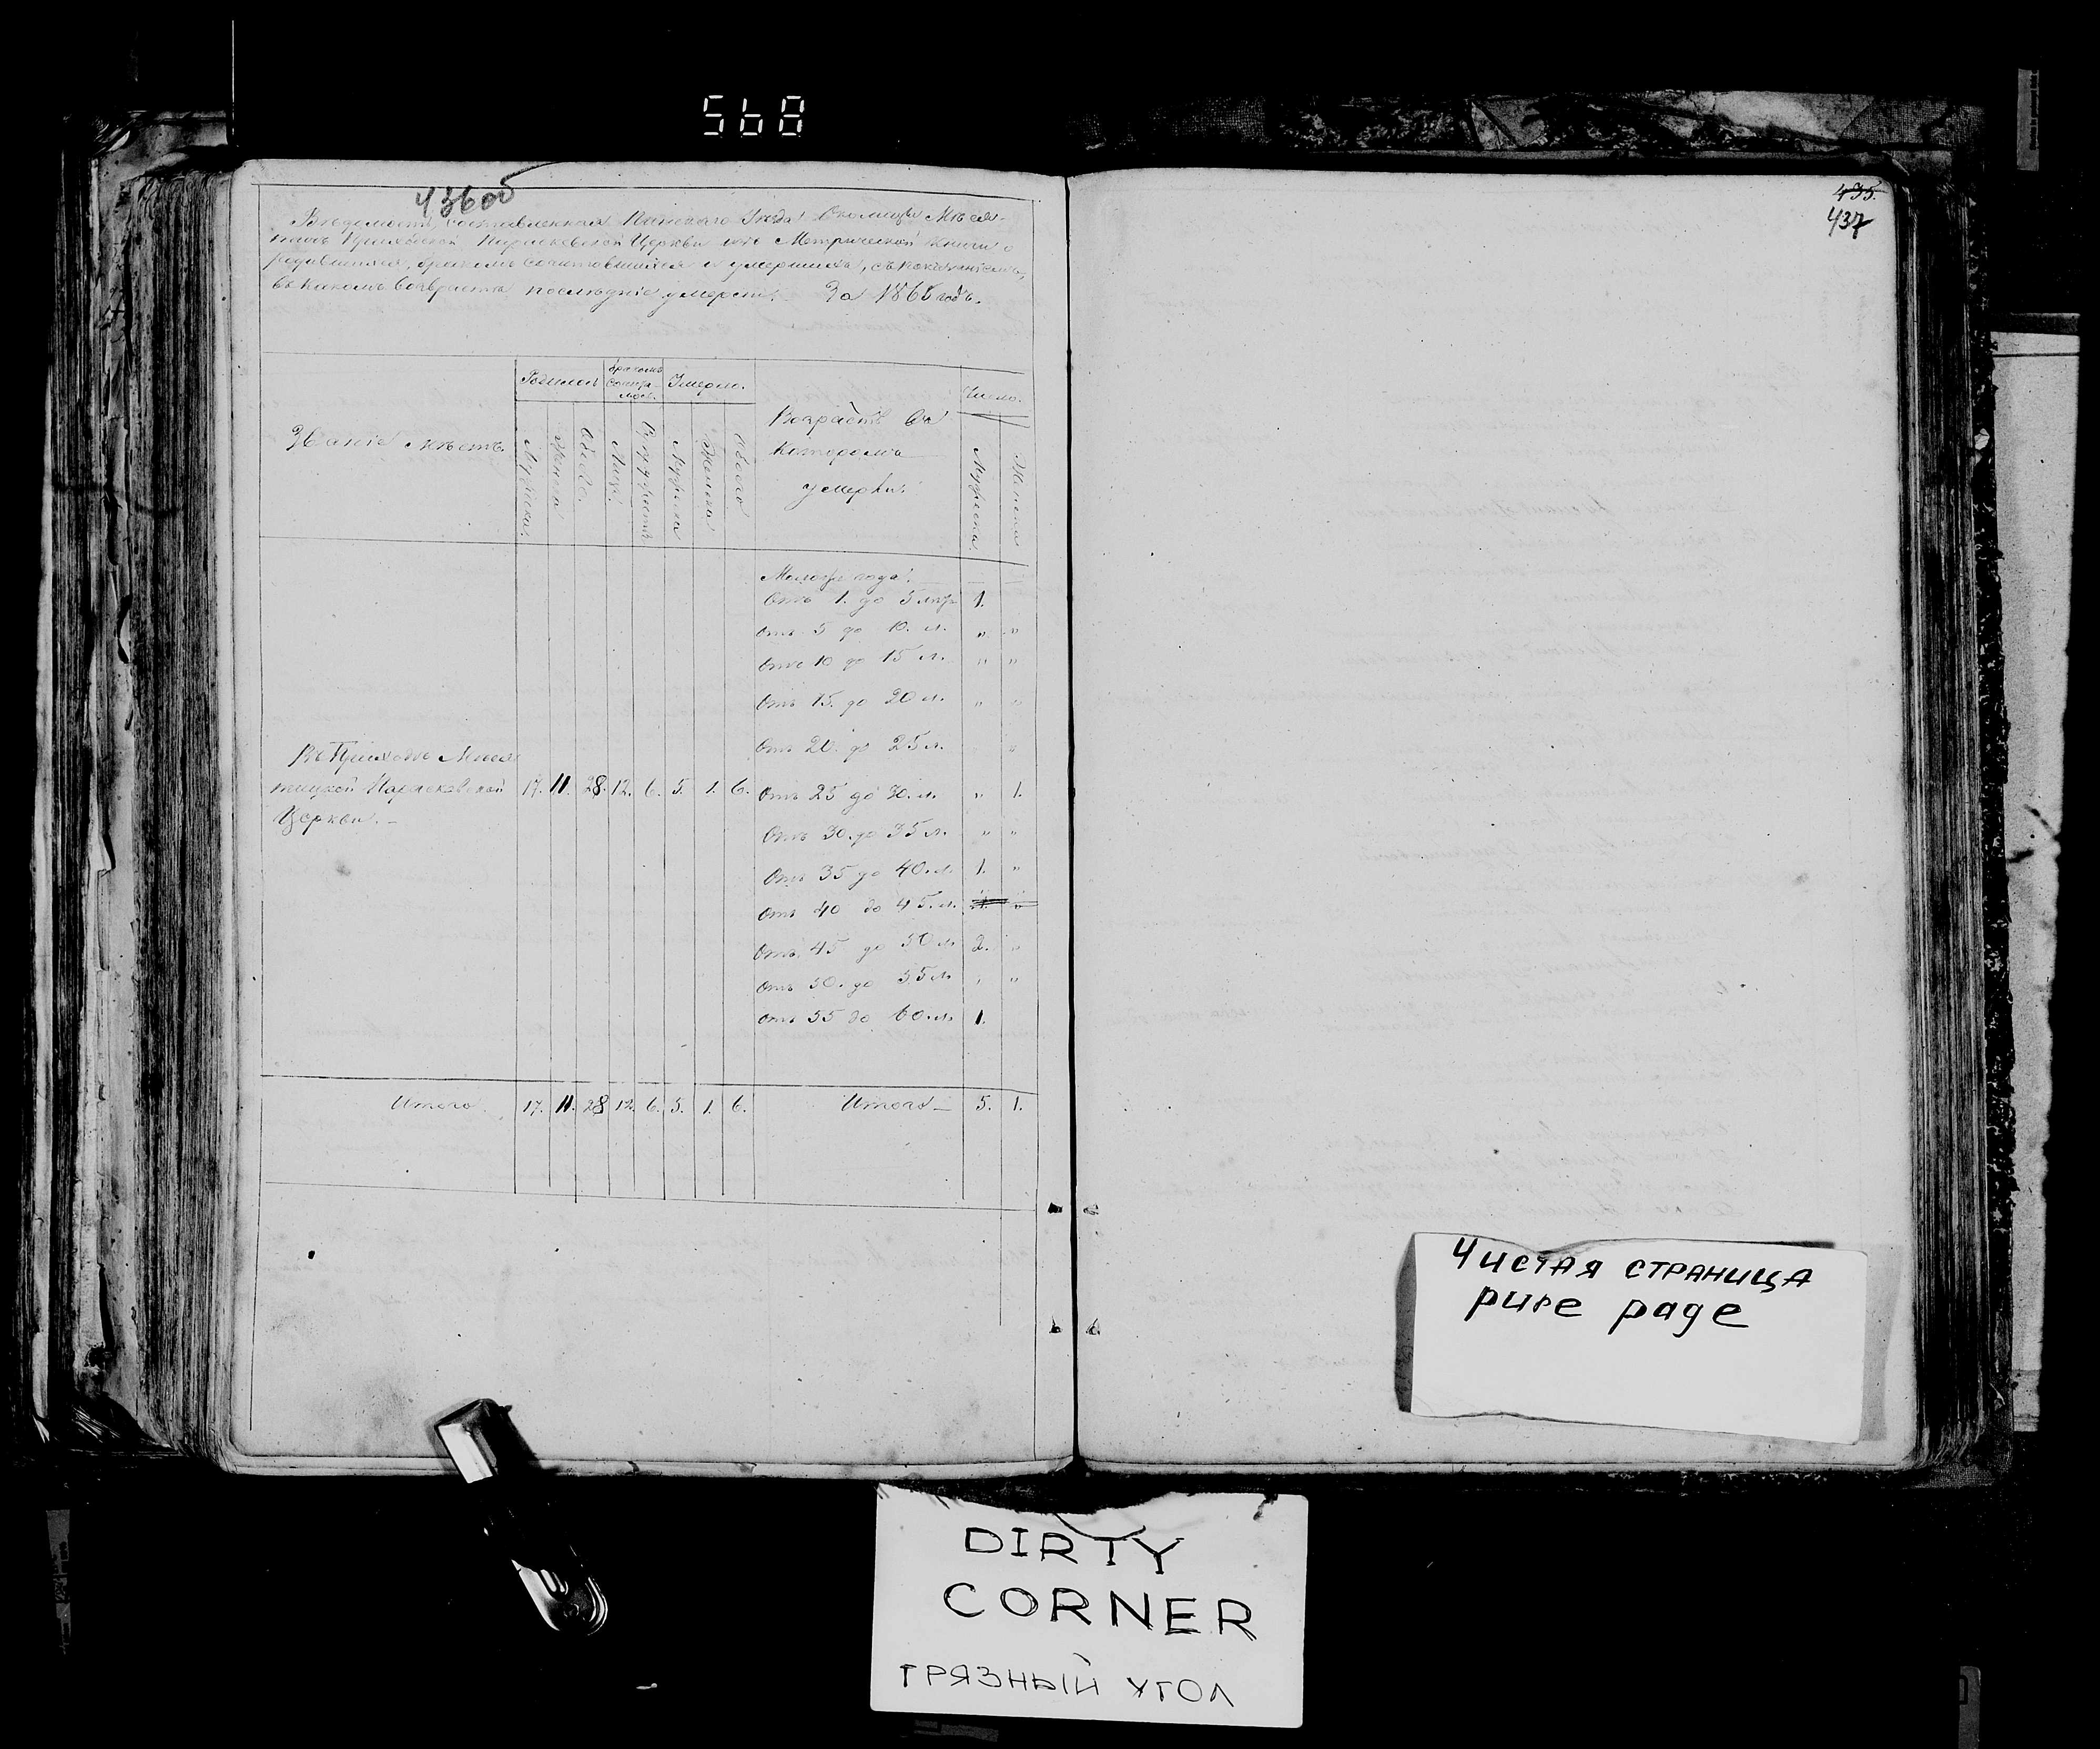 568
436об
Ведомость, составленная Пинскаго Уезда
Приходской Параскевской Церкви изъ Метрической Книги о
родившихся, бракомъ сочетавшихся и умершихъ, съ показаніемъ,
въ какомъ возрасте последніе умерли. За 186 годъ.
Званіе местъ.
Родилось
бракомъ сочета-лось.
Умерло.
Возрастъ въ
которомъ
умерли.
Число.
Мужеска.
Женска
Обоего.
Лицъ.
Супружествъ
Мужеска
Женска
обоего
Мужеска.
Женска
Менее года.
Отъ 1. до 5 летъ 1.
Отъ 5 до 10. л. " "
Отъ 10 до 15 л. " "
Отъ 15. до 20 л. " "
Отъ 20. до 25 л. "
Въ Приходе
Параскевской 17. 11. 28. 12. 6. 5. 1. 6. Отъ 25 до 30. л. " 1.
Церкви. –
Отъ 30. до 35 л. " "
Отъ 35 до 40. л. 1. "
Отъ 40 до 45. л. "
Отъ 45 до 50 л. 2. "
Отъ 50. до 55 л. " "
Отъ 55 до 60. л. 1.
Итого. 17. 11. 28 12. 6. 5. 1. 6. Итого – 5. 1.
435.
437
Чистая страница
pure page
DIRTY
CORNER
ГРЯЗНЫЙ УГОЛ